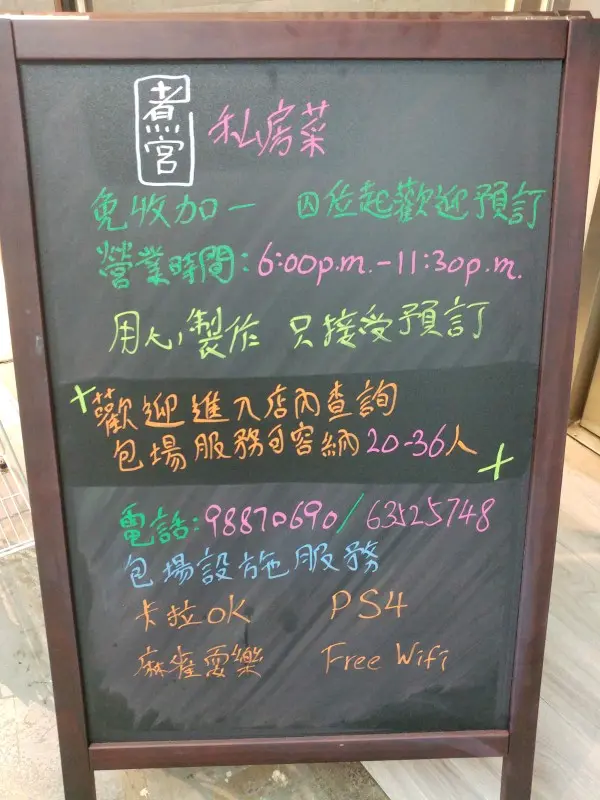 煮宮 私房菜
免收加一 四位起歡迎預訂
營業時間:6:00p.m.-11:30p.m.
用心製作 只接受預訂
歡迎進入店內查詢
包場服務可容納20-36人
電話:98870690/63525748
包場設施服務
卡拉OK PS4
麻雀耍樂 Free Wifi